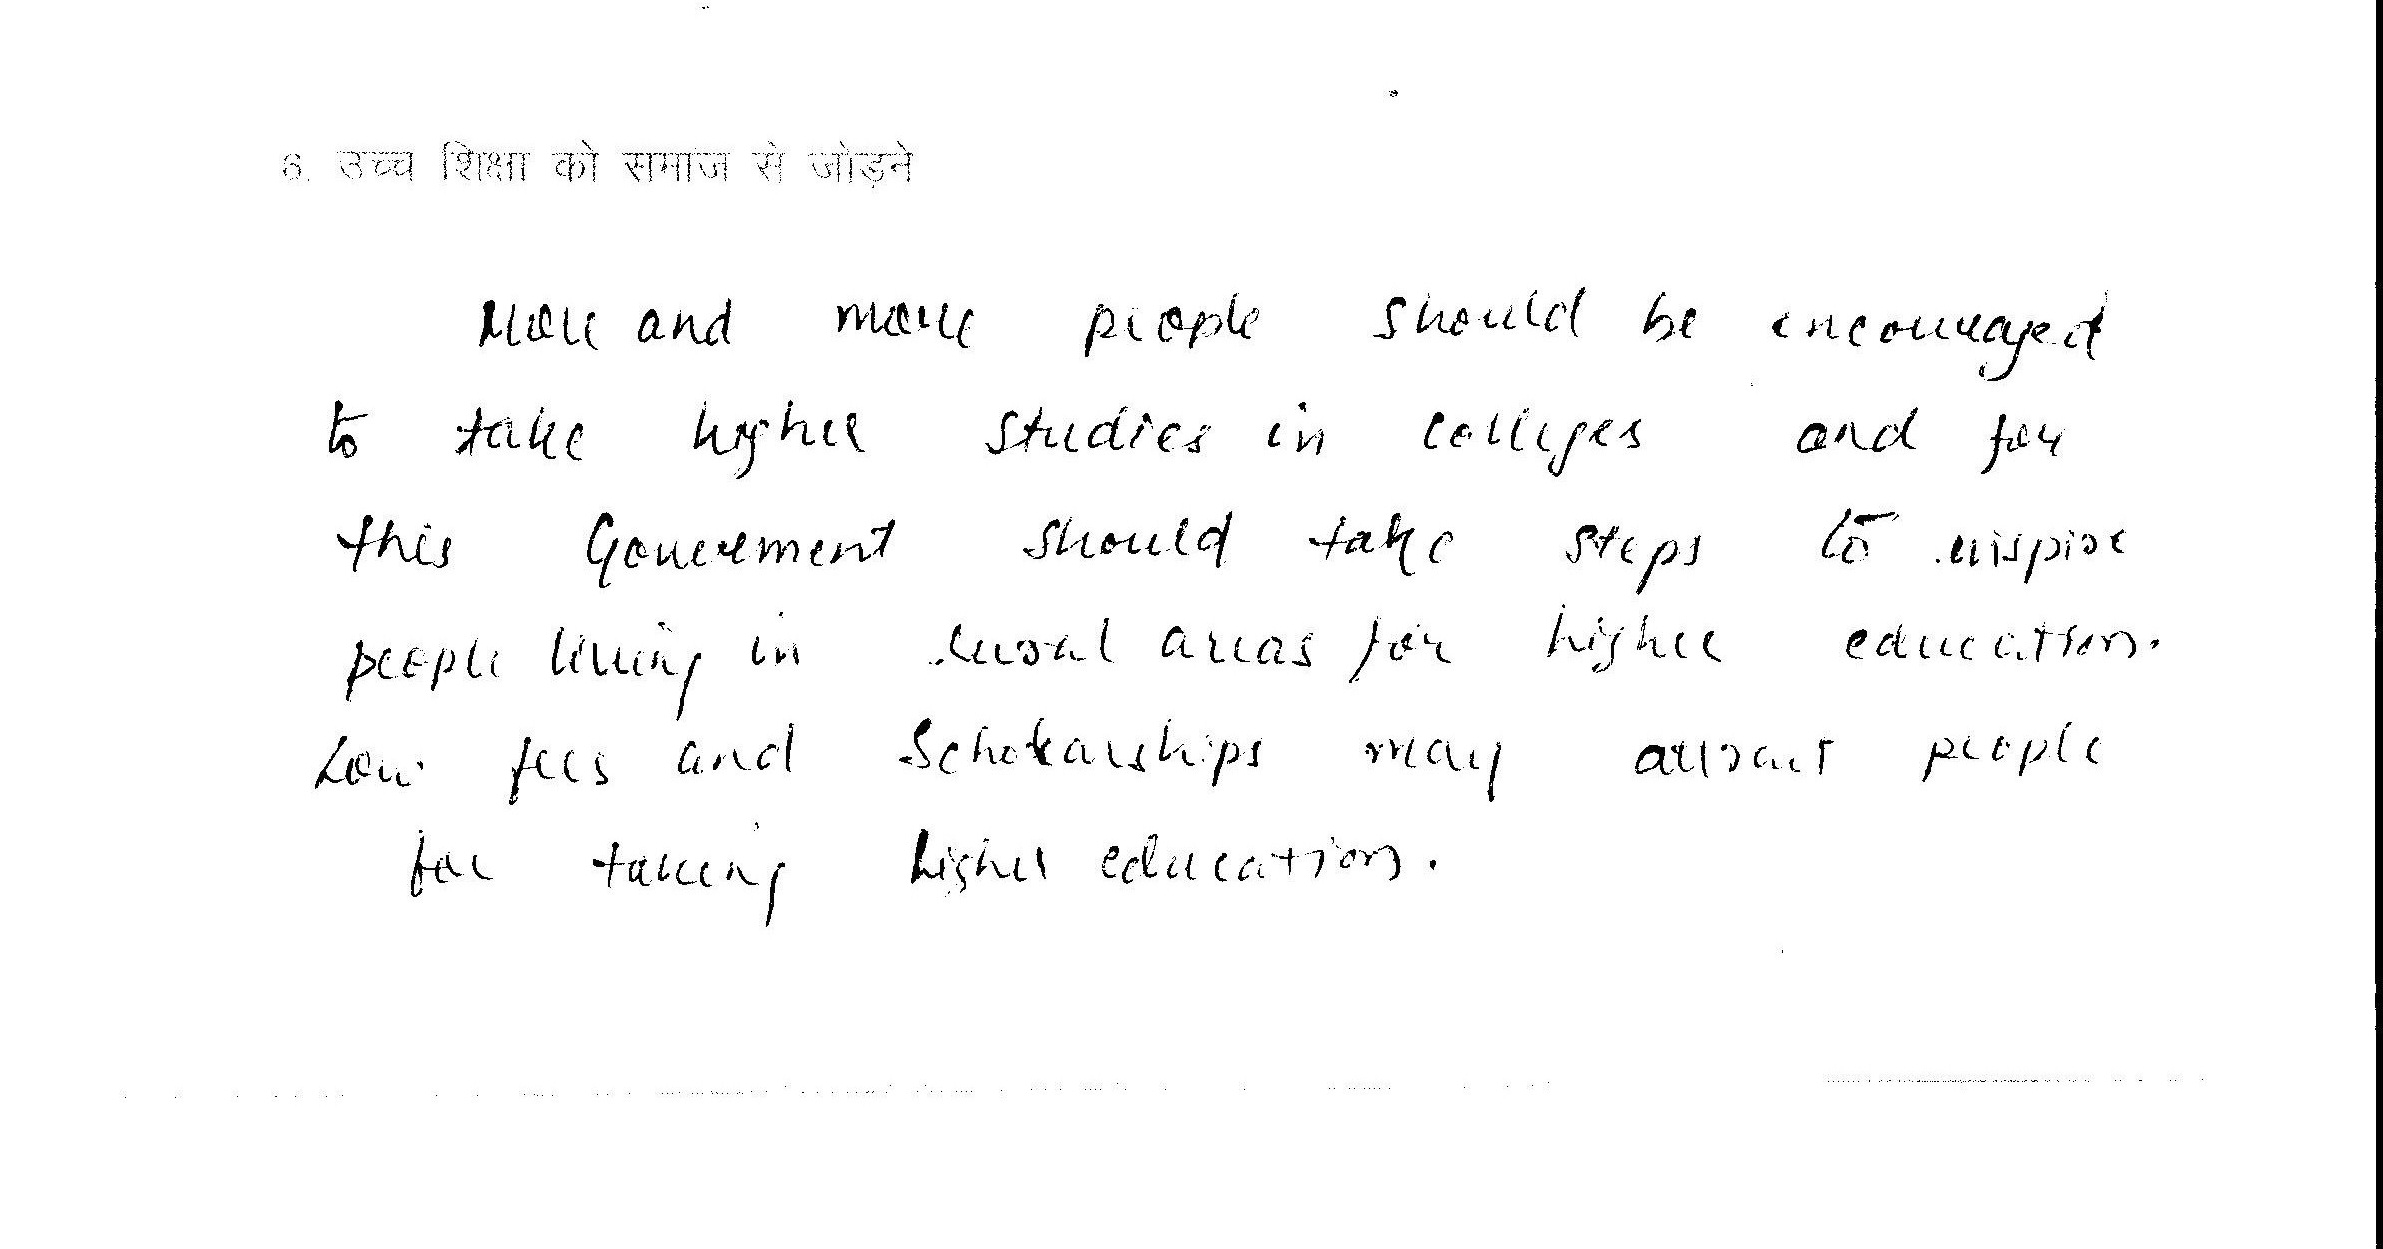 6. उच्च शिक्षा को समाज से जोड़ने
More and more people should be encouraged
to take higher studies in colleges and for
this Government should take steps to inspire
people living in rural areas for higher education.
Low fees and Scholarships may attract people
for taking higher education.